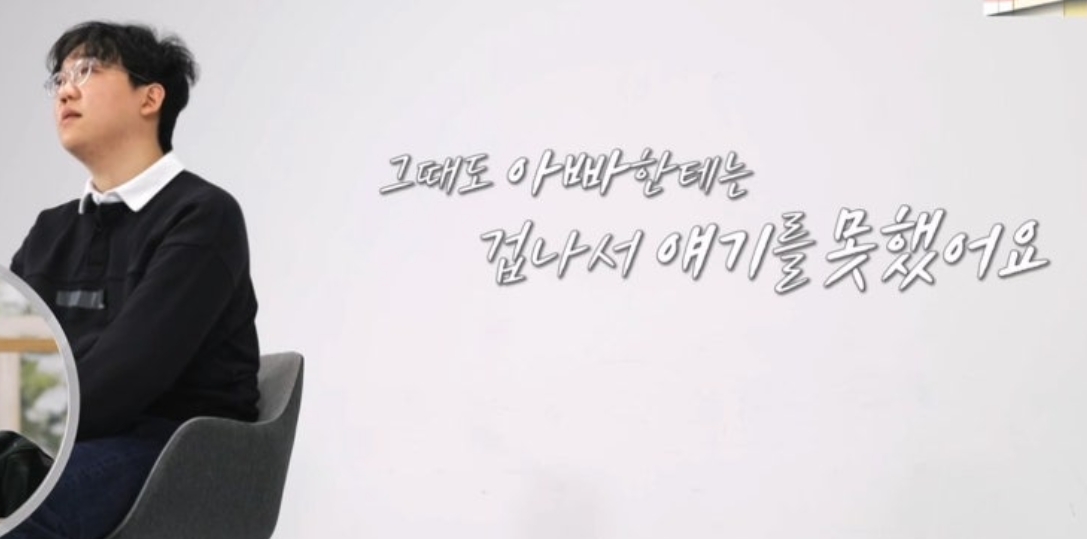 그때도 아빠한테는
겁나서 얘기를 못했어요